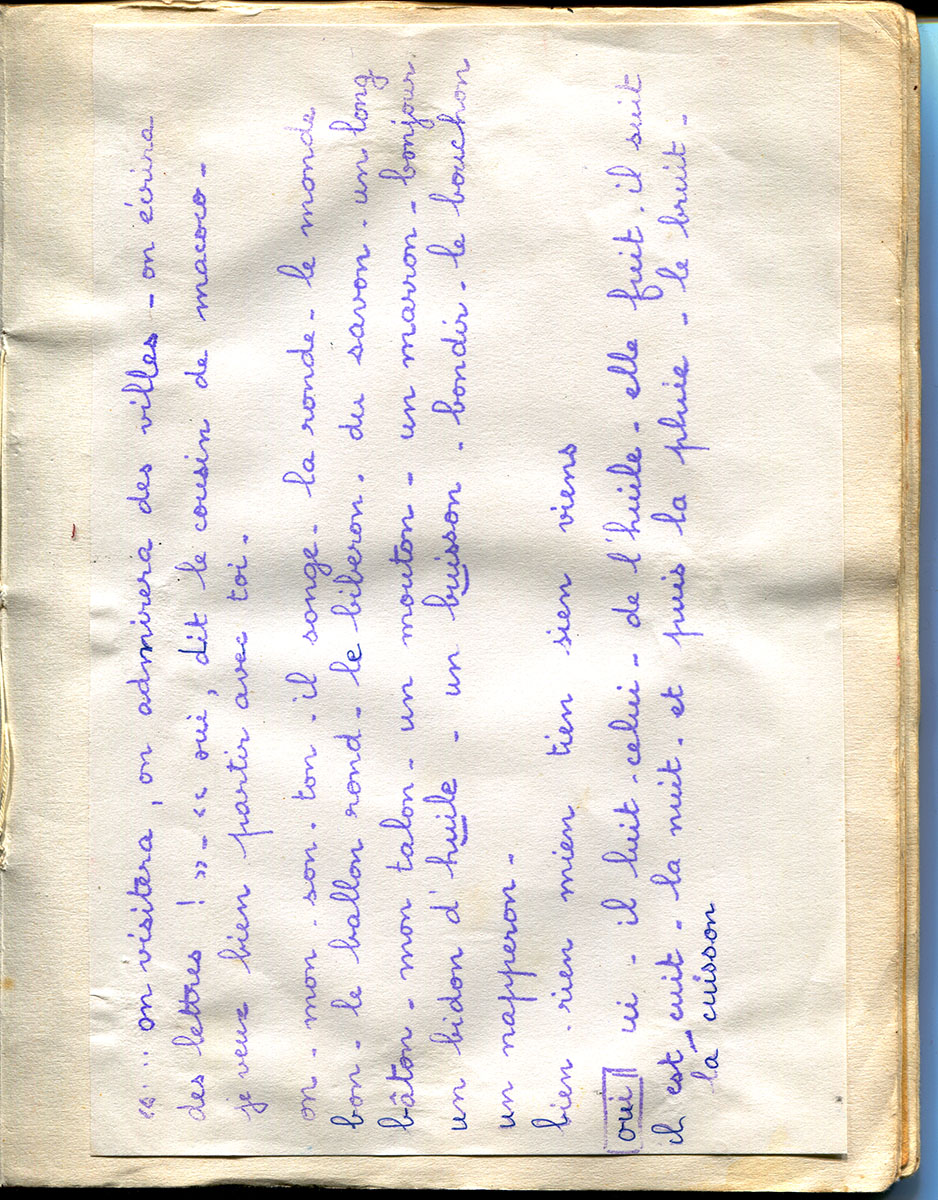 «... on visitera, on admirera des villes - on écrira
des lettres ! » - « oui, dit le cousin de macoco -
je veux bien partir avec toi.
on - mon - son - ton - il songe - la ronde - le monde
bon - le ballon rond - le biberon. du savon - un long
bâton - mon talon - un mouton - un marron - bonjour.
un bidon d'huile - un buisson - bondir - le bouchon
un napperon -
bien - rien mien tien sien viens
oui ui - il luit - celui - de l'huile - elle fuit. il suit
il est cuit - la nuit. et puis la pluie - le bruit -
la cuisson